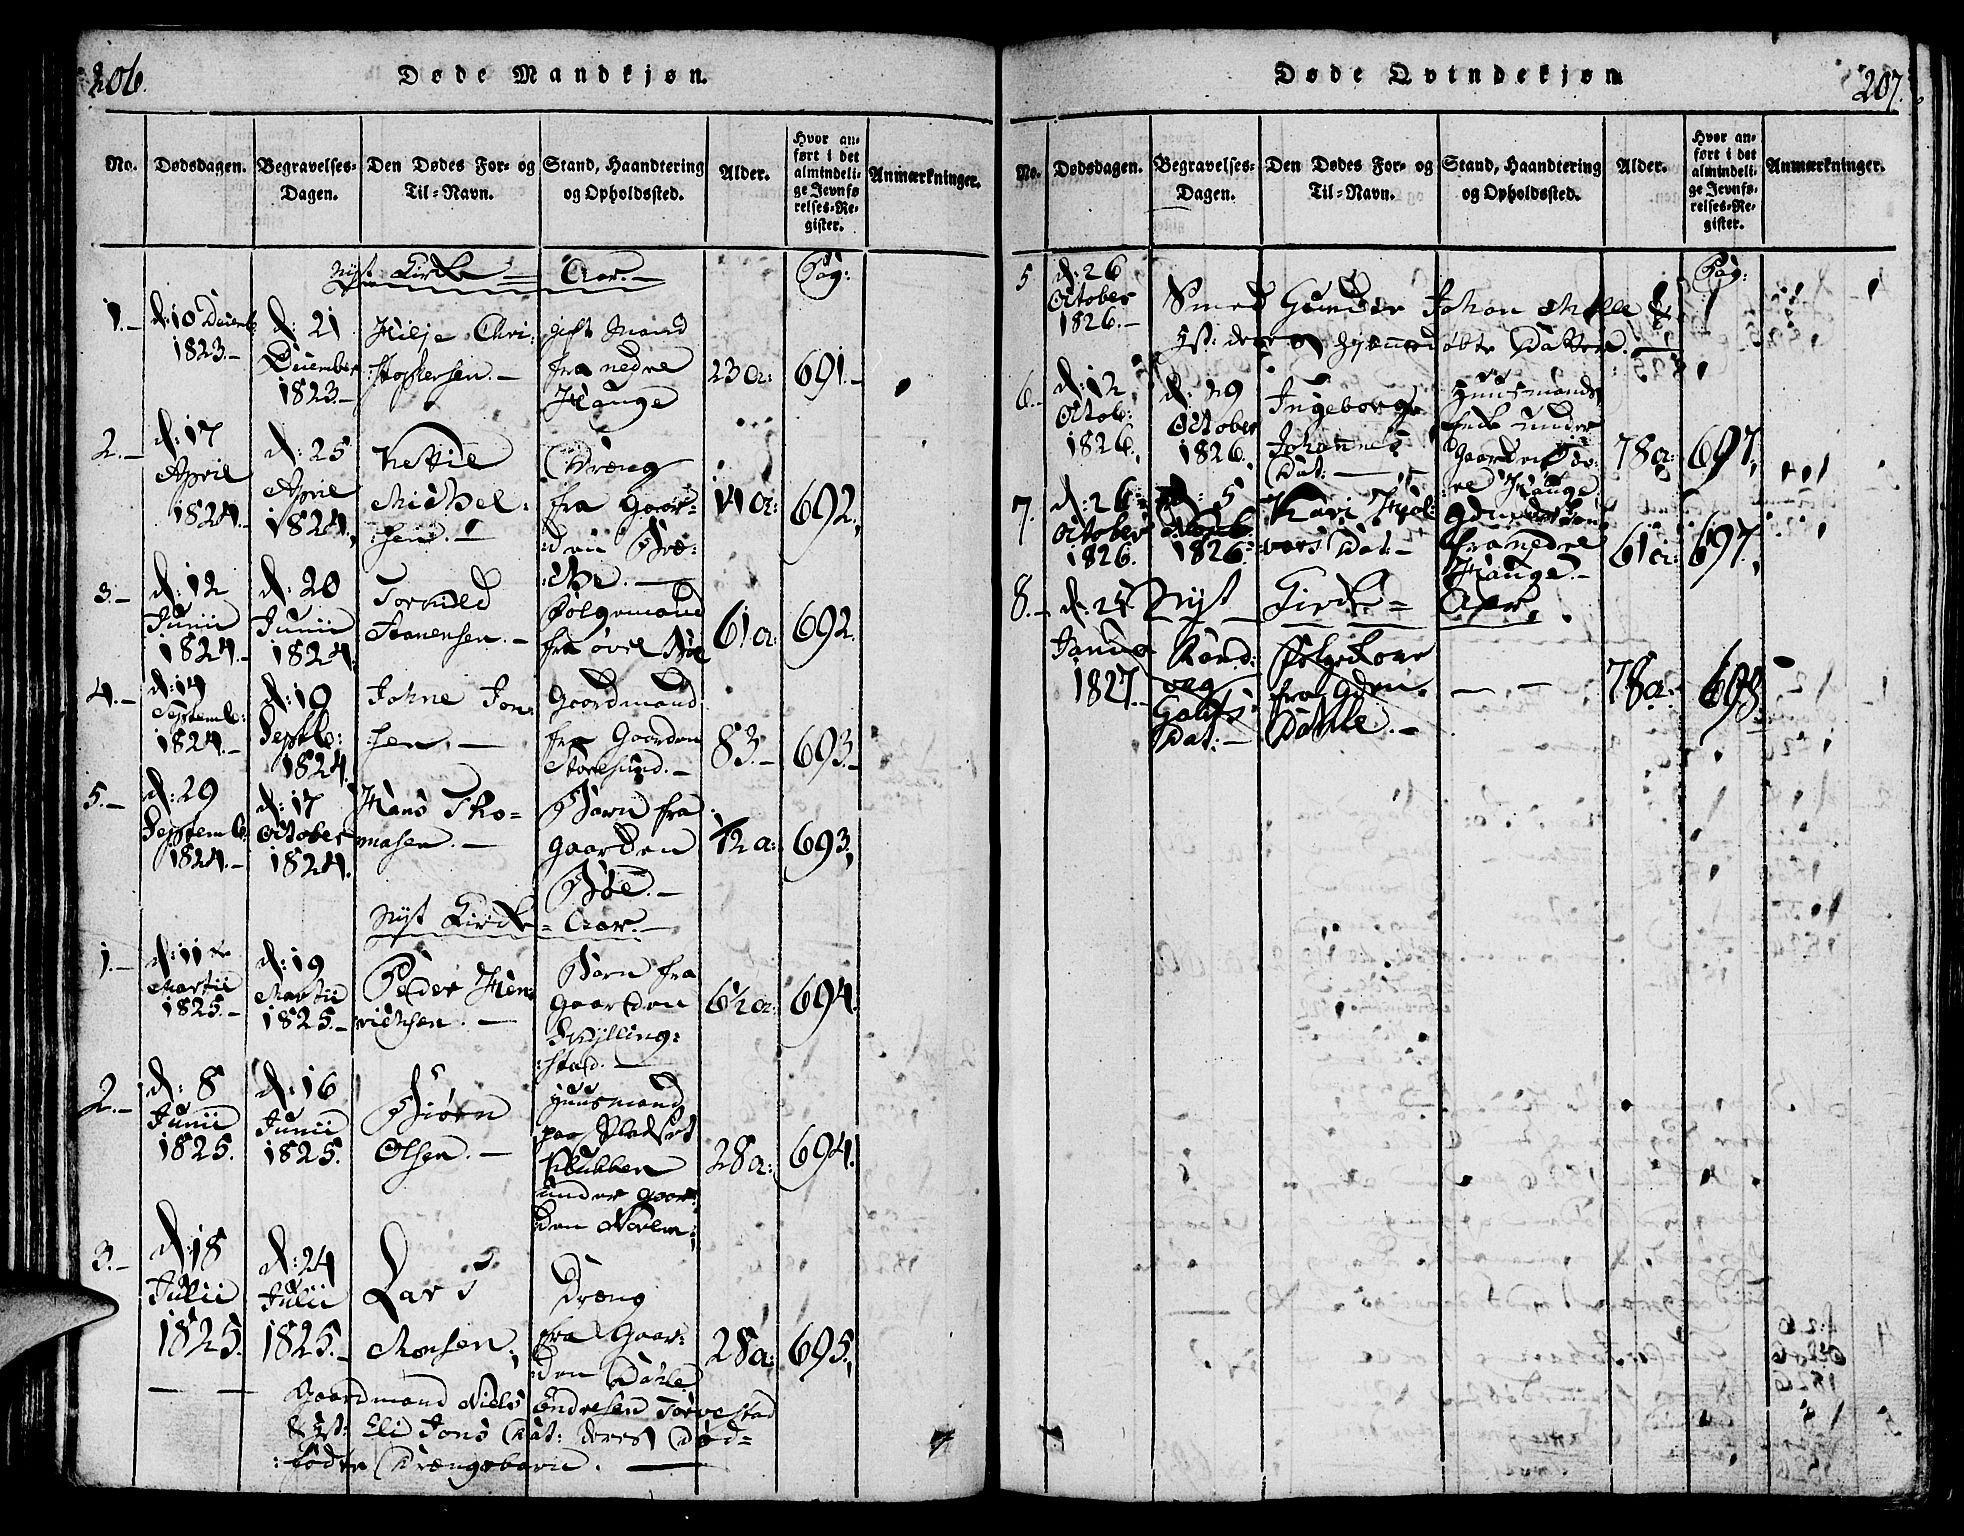 206.
Døde Mandkjøn.
No.
Dødsdagen.
Begravelses-
Dagen.
Den Dødes For- og
Til-Navn.
Stand, Haandtering
og Opholdssted.
Alder.
Hvor an-
ført i det
almindeli-
ge Jevnfø-
relses-Re-
gister.
Anmærkninger.
Nyt Kirke = Aar. —
Pag:
1. —
d: 10 Decemb
1823. —
d: 21
December
1823. —
Hilje Chri:
stophersen. —
gift Mand
fra nedre
Hauge
23 a:
691. —
2. —
d: 17
April
1824. —
d: 25
April
1824.
Kettil
Michel:
:sen. —
Dreng
fra Gaar:
:den
692.
3. —
d: 12
Junii
1824. —
d: 20
Junii
1824.
Tormod
—
Følgemand
fra øvre
61 a:
692.
4. —
d: 14
Septemb:
1824. —
d: 19
Septb:
1824.
Johne Jon:
:sen. —
Gaardmand
fra Gaarden
Storesund. —
83. —
693. —
5. —
d: 29
Septemb
1824. —
d: 17
October
1824.
Hans Tho=
masen. —
Barn fra
Gaarden
Bøe. —
1/2 a:
693,
Nyt Kirke = Aar. —
1. —
d: 11te
Martii
1825. —
d: 19
Martii
1825. —
Peder Hen:
richsen. —
Barn fra
Gaarden
Skylling:
:stad. —
6 1/2 a:
694.
2. —
d: 8
Junii
1825.
d: 16
Junii
1825.
Biørn
Olsen. —
Huusmand
paa Pladset
Klubben
under Gaar:
:den
28 a:
694.
3. —
d: 18
Julii
1825.
d: 24
Julii
1825. —
Lars
Monsen,
Dreng
fra Gaar:
:den Dahle
28 a:
695,
Gaardmand Niels Endresen Torvestad
& Hst: Eli Jons Dat: deres død=
:fødte Drængebarn. —
207.
Døde Qvindekjøn
No.
Dødsdagen.
Begravelses-
Dagen.
Den Dødes For- og
Til-Navn.
Stand, Haandtering
og Opholdssted.
Alder.
Hvor an-
ført i det
almindeli-
ge Jevnfø-
relses-Re-
gister.
Anmærkninger.
Pag:
5
d: 26
October
1826. —
Smed Gunder Johan
Hst: deres hjemmedøbte Datter. —
6. —
d: 12
Octob:
1826.
d: 29
October
1826.
Ingeborg
Johannes
Dat: —
Huusmands
Enke under
Gaarden
Hauge.
78 a:
697,
7.
d: 26
October
1826.
d: 5
1826.
Kari
Dat: —
fra nedre
Hauge. —
61 a:
697,
8. —
d: 25
Janua
1827. —
Nyt Kirke = Aar.
Rand:
veg
Dat: —
Følgekone
fra Gden.
Dahle. —
78 a:
698.